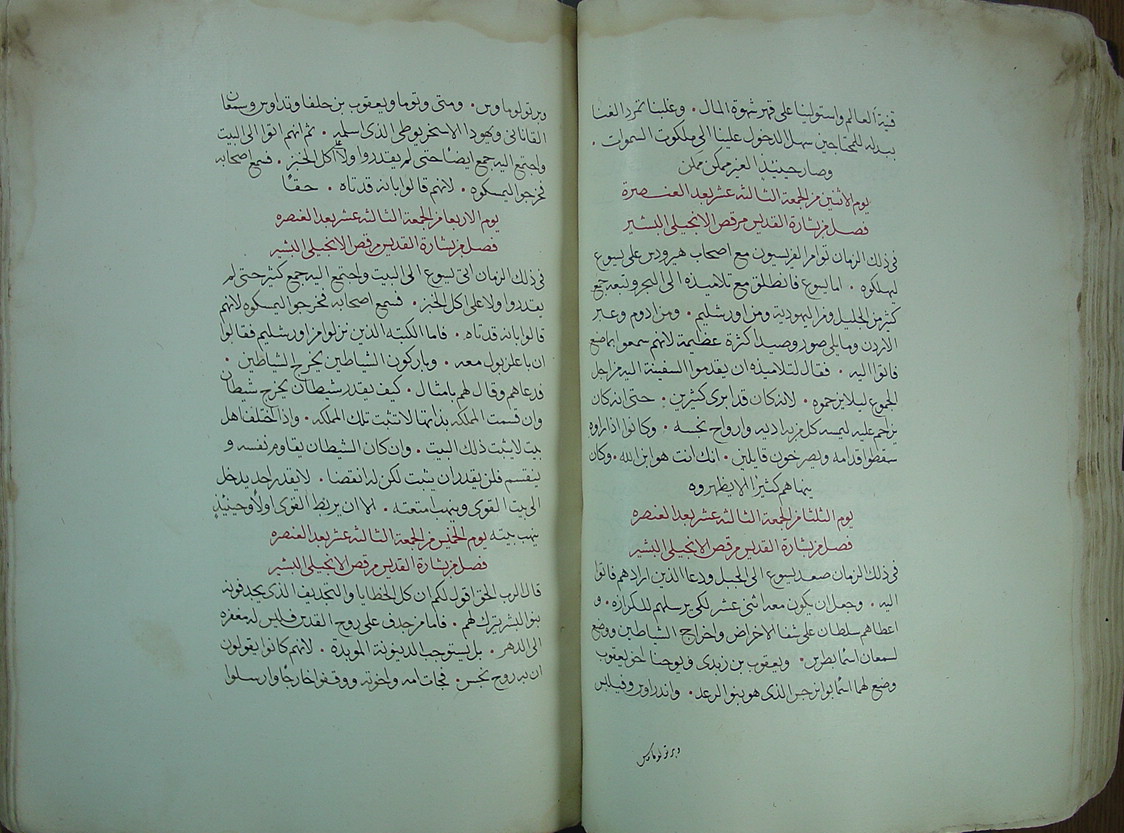 قنية العالم واستولينا على قهر شهوة المال . وغلبنا تمرد الغنا
ببدله للمحتاجين سهل الدخول علينا الى ملكوت السموات .
وصار حينيذ العزيز ممكن
يوم الاثنين من الجمعة الثالثة عشر بعد العنصرة
فصل من بشارة القديس مرقص الانجيلي البشير
في ذلك الزمان توامر الفريسيون مع اصحاب هرودس على يسوع
ليهلكوه . اما يسوع فانطلق مع تلاميذه الى البحر وتبعه جمع
كثير من الجليل ومن اليهودية ومن اورشليم . ومن ادوم وعبر
الاردن وما يلي صور وصيدا كثرة عظيمة لانهم سمعوا بما صنع
فاتوا اليه . فقال لتلاميذه ان يقدموا السفينة اليه من اجل
الجموع ليلا يزحموه . لانه كان قد ابرى كثيرين . حتى انه كان
يزاحم عليه ليمسه كل من به اديه وارواح نجسه . وكانوا اذا راوه
سقطوا قدامه ويصرخون قايلين . انك انت هو ابن الله . وكان
ينهاهم كثيرًا الا يظهروه
يوم الثلثا من الجمعة الثالثة عشر بعد العنصره
فصل من بشارة القديس مرقص الانجيلي البشير
في ذلك الزمان صعد يسوع الى الجبل ودعا الذين ارادهم فاتوا
اليه . وجعل ان يكون معه اثني عشر لكي يرسلهم للكرازه . و
اعطاهم سلطان على شفا الامراض واخراج الشياطين ووضع
لسمعان اسمًا بطرس . ويعقوب بن زبدى ويوحنا اخو يعقوب
وضع لهما اسمًا بوانرجس الذى هو بنو الرعد . واندراوس وفيلبس
وبرتولوماوس
وبرتولوماوس . ومتى وتوما ويعقوب بن حلفا وتداوس وسمعان
القاناني ويهودا الاسخريوطي الذى اسلمه . ثم انهم اتوا الى البيت
واجتمع اليه جمع ايضًا حتى لم يقدروا ولا اكل الخبز . فسمع اصحابه
فخرجوا ليمسكوه . لانهم قالوا بانه قد تاه . حقًا
يوم الاربعا من الجمعة الثالثة عشر بعد العنصره
فصل من بشارة القديس مرقص الانجيلي البشير
في ذلك الزمان اتى يسوع الى البيت واجتمع اليه جمع كثير حتى لم
يقدروا ولا على اكل الخبز . فسمع اصحابه فخرجوا ليمسكوه لانهم
قالوا بانه قد تاه . فاما الكتبه الذين نزلوا من اورشليم فقالوا
ان باعلزبول معه . وباركون الشياطين يخرج الشياطين .
فدعاهم وقال لهم بامثال . كيف يقدر شيطان يخرج شيطان
وان قسمت المملكه بذاتها لا تثبت تلك المملكه . واذا اختلف اهل
بيت لا يثبت ذلك البيت . وان كان الشيطان يقاوم نفسه و
ينقسم فلن يقدر ان يثبت لكن له انقضا . لا يقدر احد يدخل
الى بيت القوى وينهب متعته . الا ان يربط القوى اولًا وحينيذ
ينهب بيته يوم الخميس من الجمعة الثالثة عشر بعد العنصره
فصل من بشارة القديس مرقص الانجيلي البشير
قال الرب الحق اقول لكم ان كل الخطايا والتجديف الذى يجدفونه
بنو البشر يترك لهم . فاما من جدف على روح القدس فليس له مغفرة
الى الدهر . بل يستوجب الدينونة الموبدة . لانهم كانوا يقولون
ان به روح نجس . فجات امه واخوته ووقفوا خارجًا وارسلوا